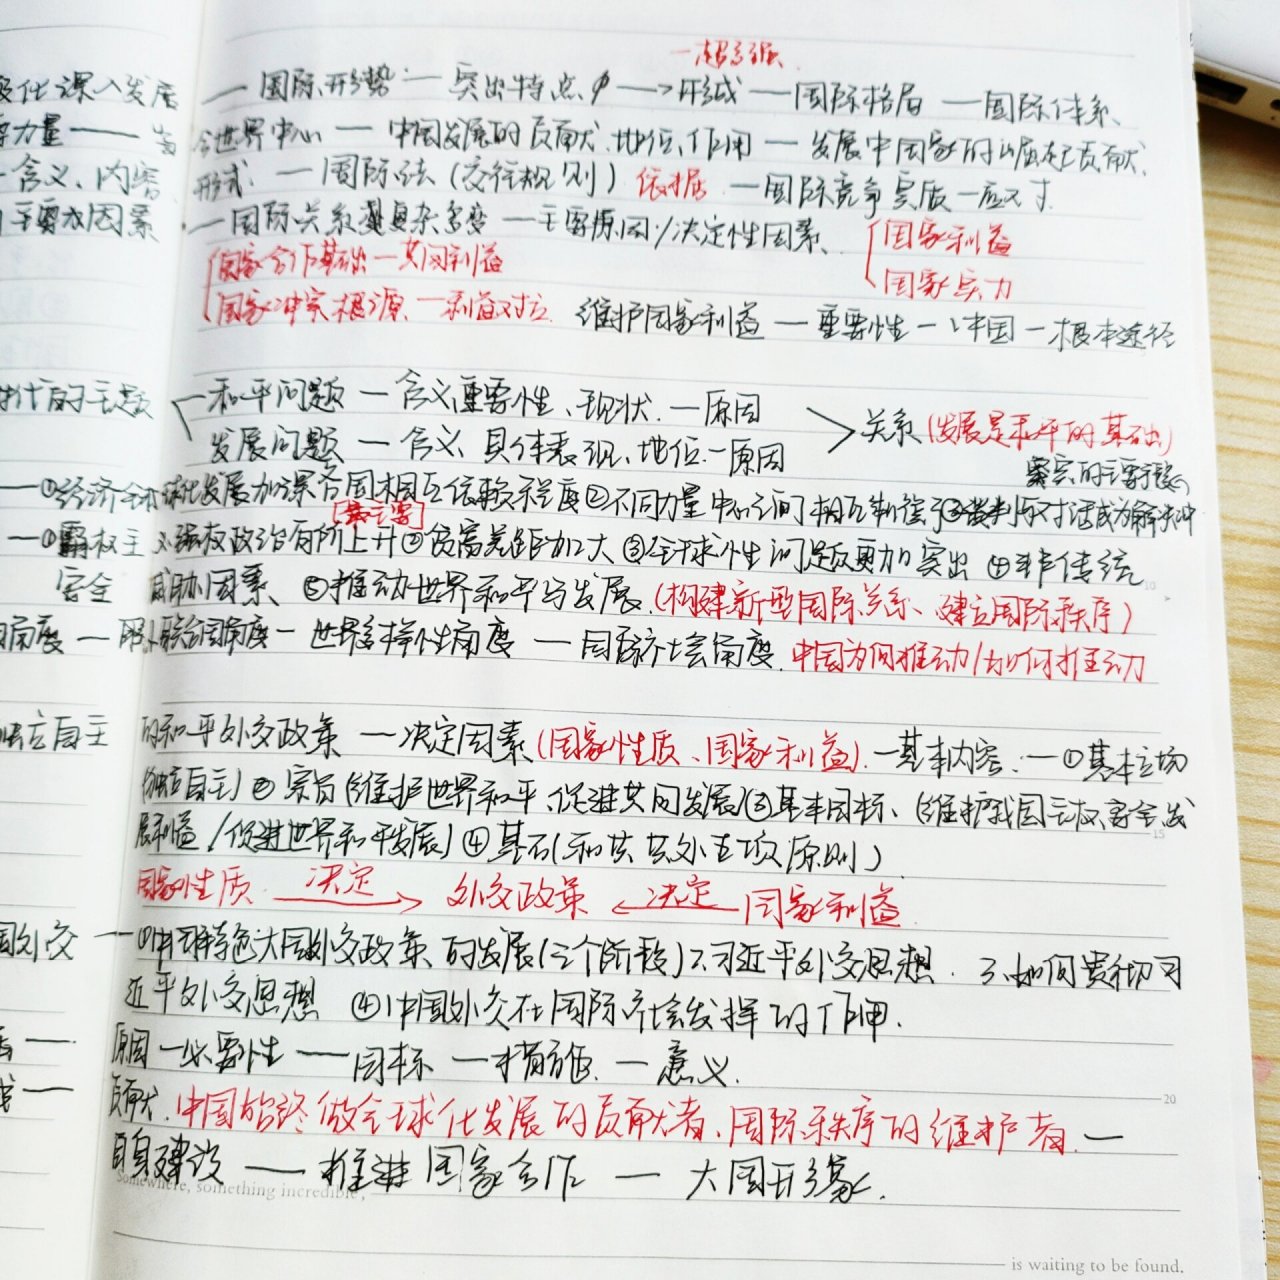 一超多强
极化深入发展 — 国际形势 — 突出特点 → 形成 — 国际格局 — 国际体系、
力量 — 世界中心 — 中国发展的贡献、地位、作用 — 发展中国家的崛起、贡献、
含义、内容、形式 — 国际法（交往规则）依据 — 国际竞争实质 — 应对
主要成因素 — 国际关系复杂多变 — 主要原因/决定性因素、 国家利益
国家合作基础—共同利益 国家实力
国家冲突根源—利益对立 维护国家利益 — 重要性 — 中国 — 根本途径
时代的主题 和平问题 — 含义、重要性、现状 — 原因
发展问题 — 含义、具体表现、地位 — 原因 关系（发展是和平的基础）
突的主要手段
— ①经济全球化发展加深各国相互依赖程度②不同力量中心之间相互制衡③谈判与对话成为解决冲
[最主要]
— ①霸权主义强权政治有所上升②贫富差距加大③全球性问题更加突出④非传统
安全威胁因素、⑤推动世界和平与发展（构建新型国际关系、建立国际秩序）
角度 — 联合国角度 — 世界多样性角度 — 国际社会角度 中国为何推动/如何推动
独立自主的和平外交政策 — 决定因素（国家性质、国家利益）— 基本内容：— ①基本立场
（独立自主）②宗旨（维护世界和平、促进共同发展）③基本目标、（维护我国主权、安全、发
展利益/促进世界和平发展）④基石（和共处五项原则）
国家性质 决定→ 外交政策 ←决定 国家利益
国外交 — ①中国特色大国外交政策的发展（三个阶段）2.习近平外交思想 3.如何贯彻习
近平外交思想 ④中国外交在国际社会发挥的作用.
— 原因 — 必要性 — 目标 — 措施 — 意义.
— 贡献.中国始终做全球化发展的贡献者、国际秩序的维护者 —
自身建设 — 推进国家合作 — 大国形象.
Somewhere, something incredible,
is waiting to be found.
10
15
20